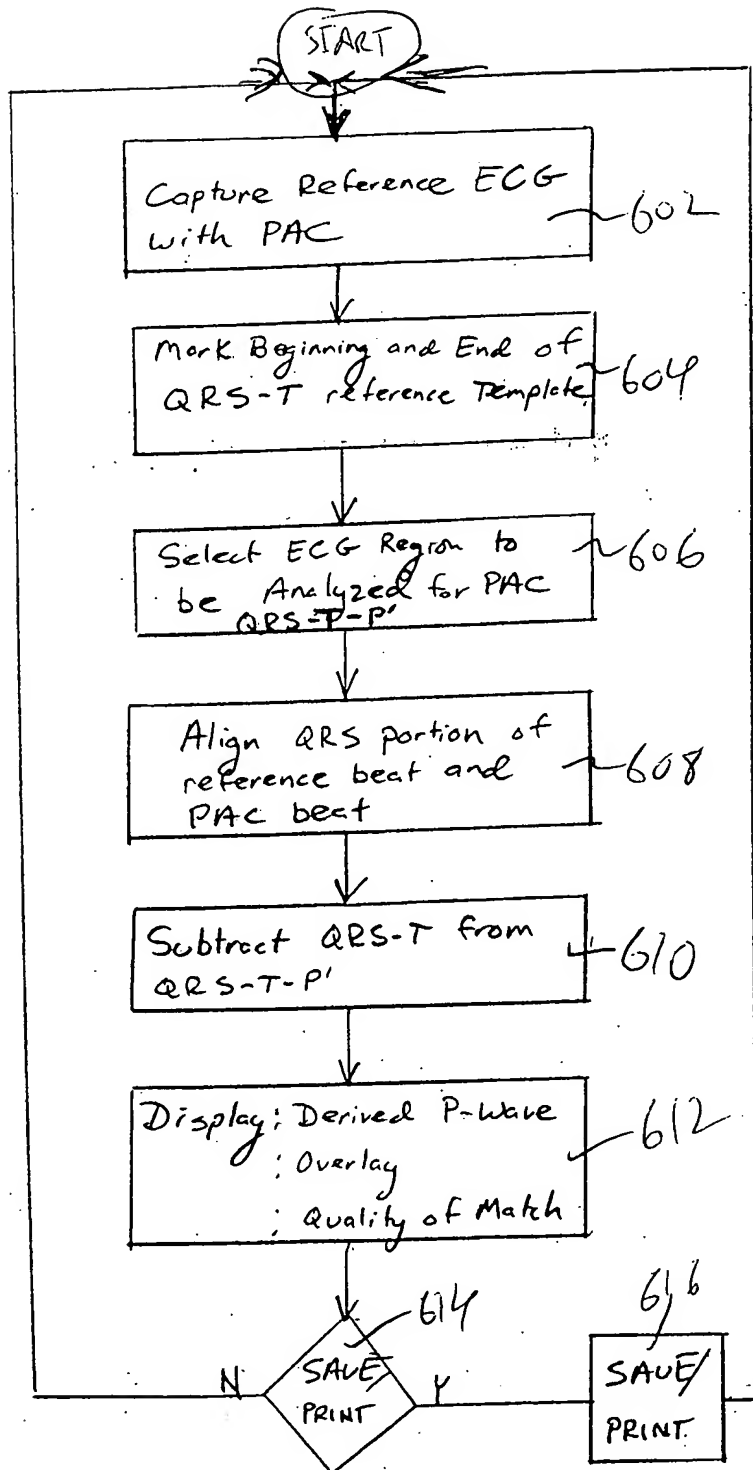 START
Capture Reference ECG
with PAC
602
Mark Beginning and End of
QRS-T reference Template
604
Select ECG Region to
be Analyzed for PAC
QRS-T-P'
606
Align QRS portion of
reference beat and
PAC beat
608
Subtract QRS-T from
QRS-T-P'
610
Display: Derived P-Wave
: Overlay
: Quality of Match
612
614
SAVE/
PRINT
N
Y
616
SAVE/
PRINT